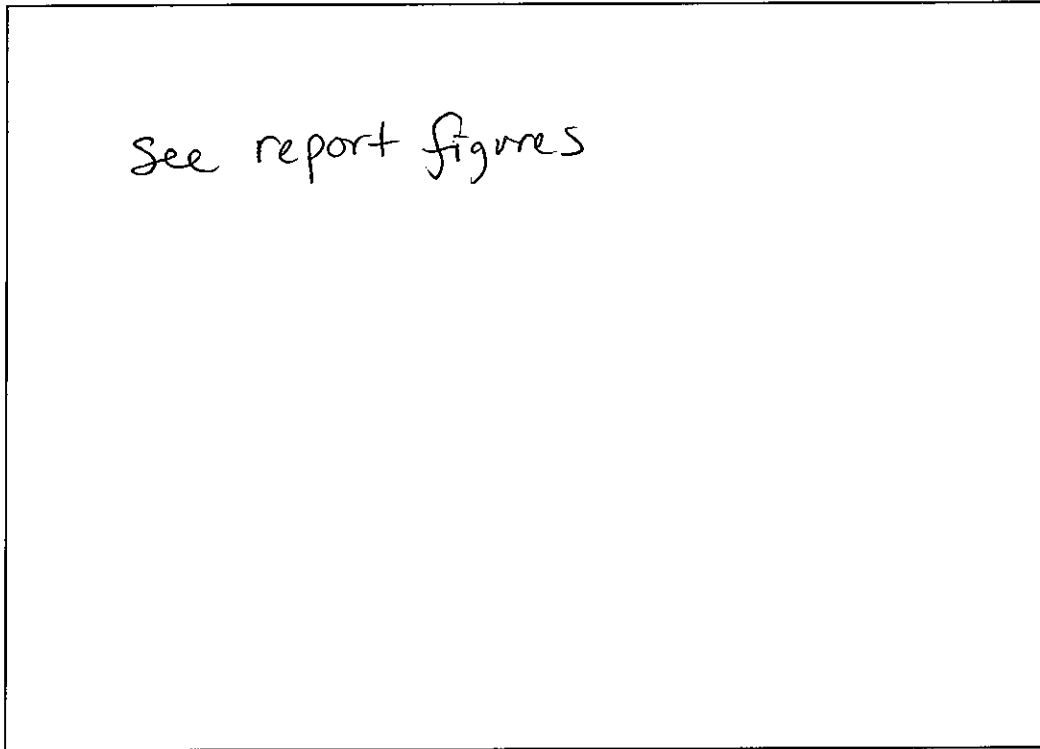 See report figures